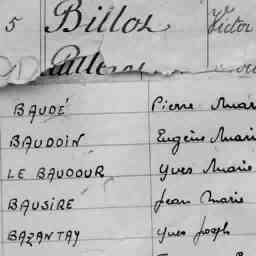 5 Billoz Victor
BAUDÉ Pierre Marie
BAUDOIN Eugène Marie
LE BAUDOUR Yves Marie
BAUSIRE Jean Marie
BAZANTAY Yves Joseph